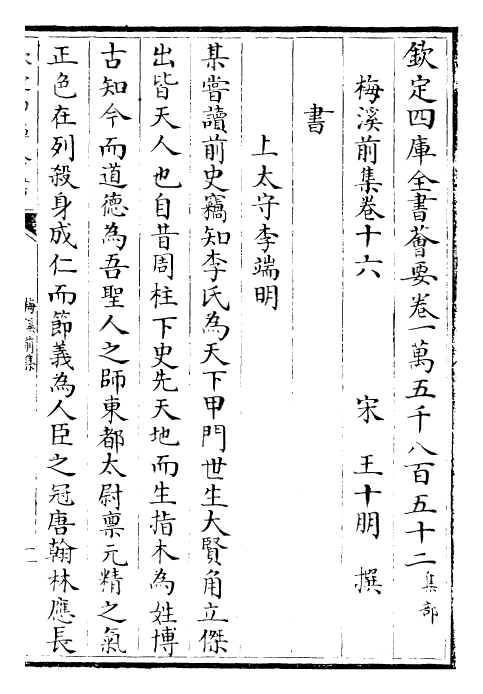 欽定四庫全書薈要卷一萬五千八百五十二集部
梅溪前集卷十六 宋 王十朋 撰
書
上太守李端明
某嘗讀前史竊知李氏為天下甲門世生大賢角立傑
出皆天人也自昔周柱下史先天地而生指木為姓博
古知今而道德為吾聖人之師東都太尉禀元精之氣
正色在列殺身成仁而節義為人臣之冠唐翰林應長
梅溪前集